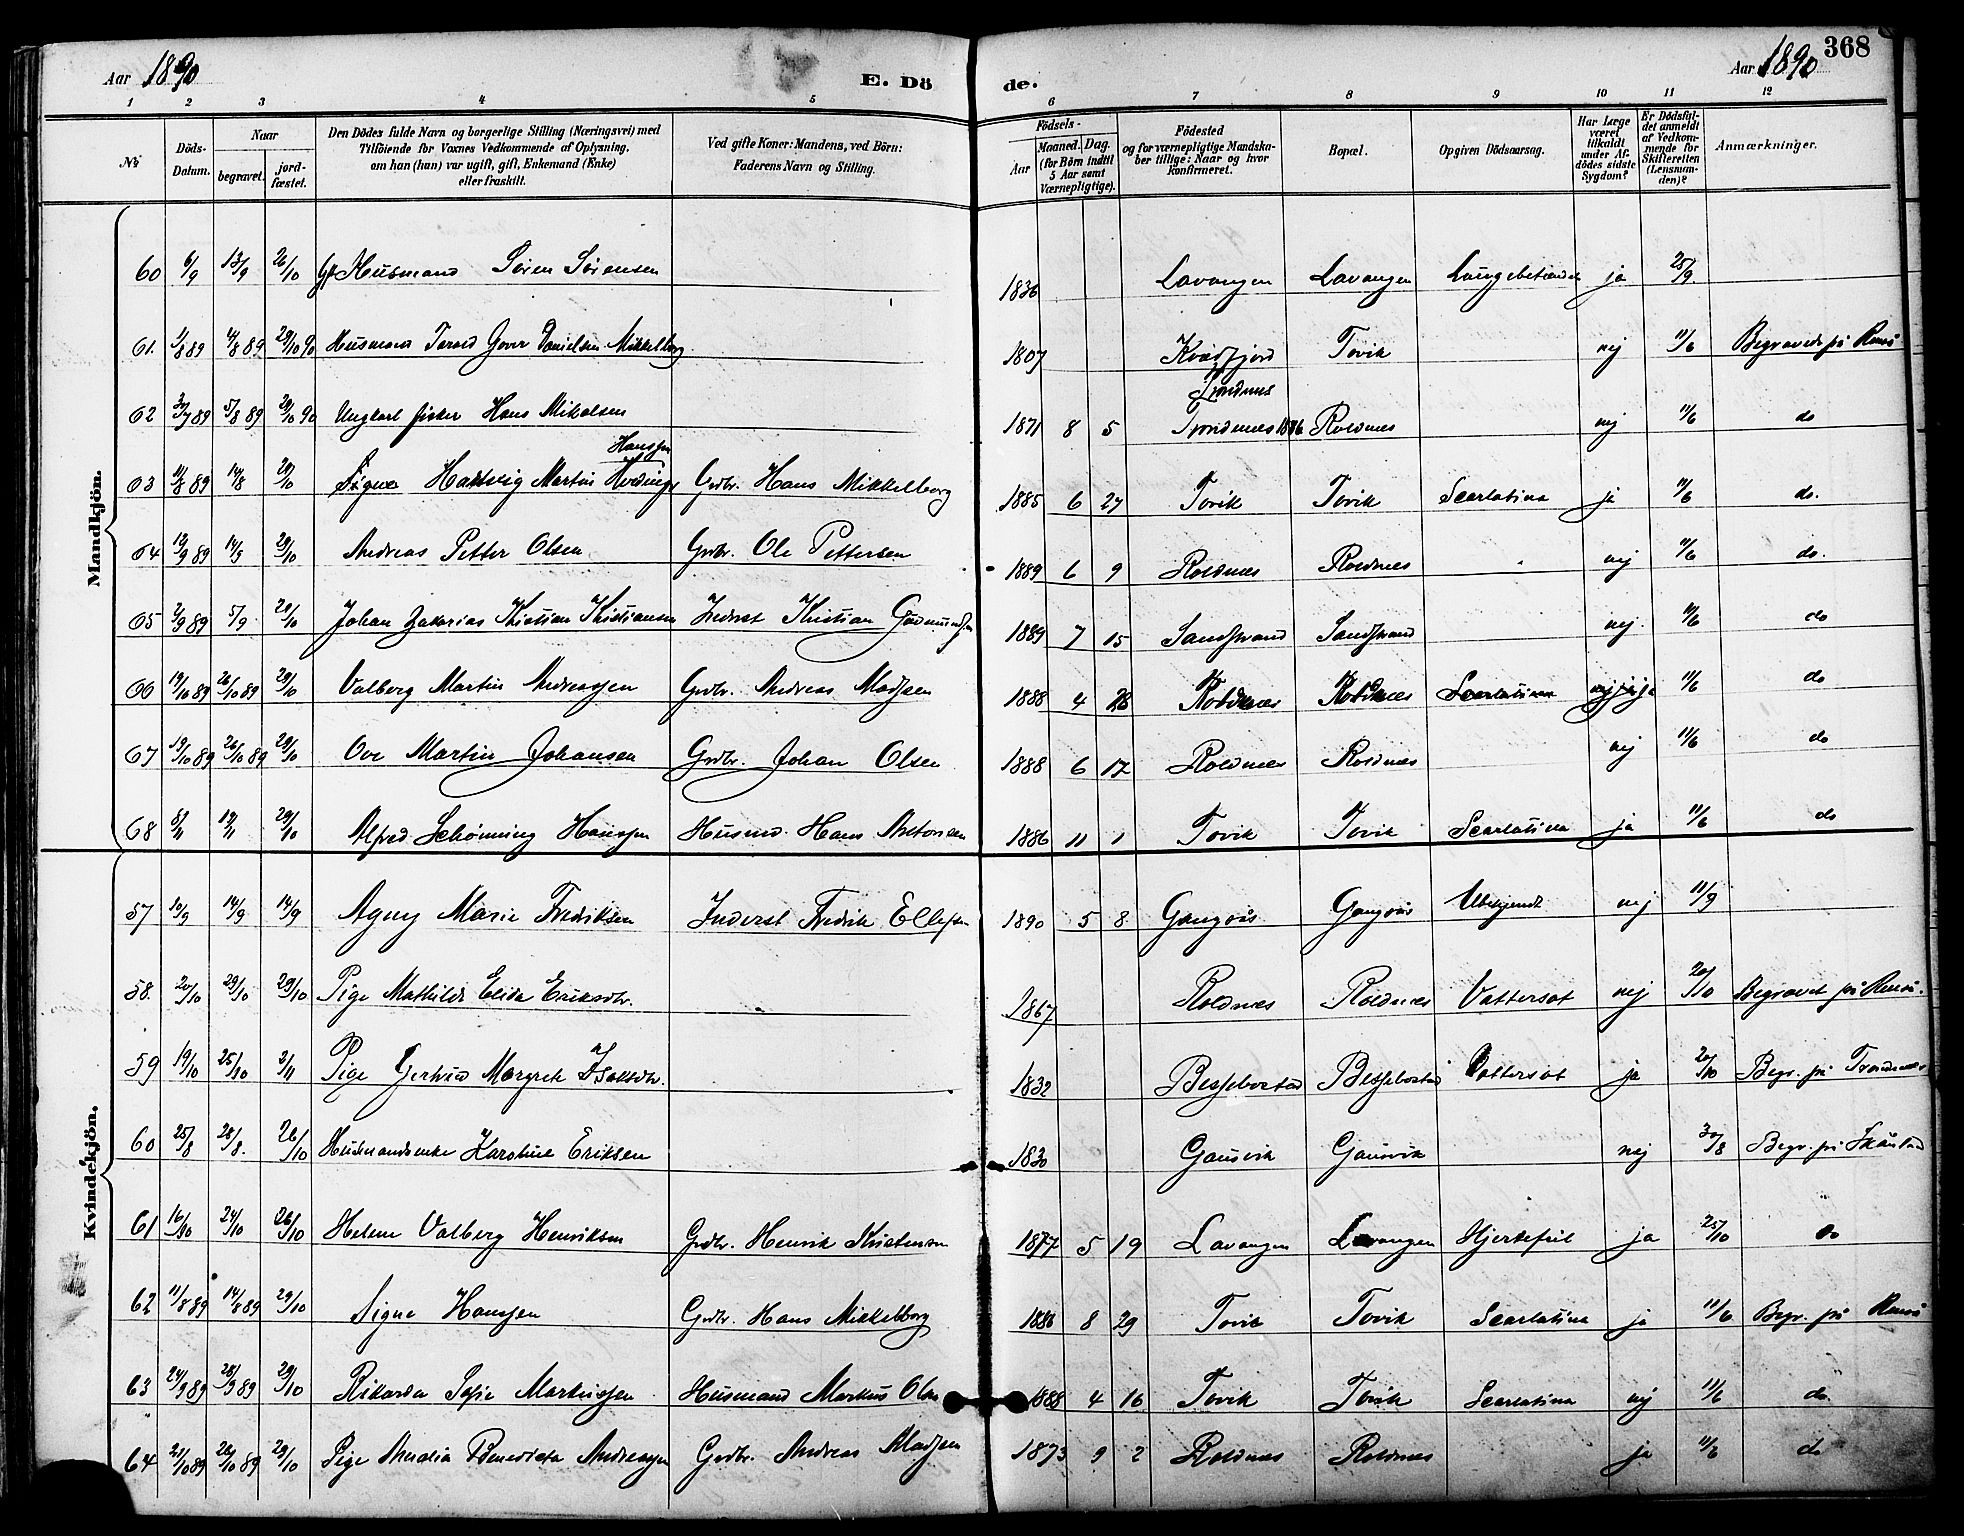 368
Aar 1890
E. Döde.
Aar 1890
1 2 3 4 5 6 7 8 9 10 11 12
No
Döds-Datum.
Naar
begravet.
jordfæstet.
Den Dödes fulde Navn og borgerlige Stilling (Næringsvei) med Tilföiende for Voxnes Vedkommende af Oplysning, om han (hun) var ugift, gift, Enkemand (Enke) eller fraskilt.
Ved gifte Koner: Mandens, ved Börn: Faderens Navn og Stilling.
Födsels-
Aar
Maaned. Dag. (for Börn indtil 5 Aar samt Værnepligtige).
Födested og for værnepligtige Mandskaber tillige: Naar og hvor konfirmeret.
Bopæl.
Opgiven Dödsaarsag.
Har Læge været tilkaldt under Afdödes sidste Sygdom?
Er Dödsfaldet anmeldt af Vedkommende for Skifteretten (Lensmanden)?
Anmærkninger.
Mandkjön.
60 6/9 13/9 26/10 Husmand Sören Sörensen 1836 Lavangen Lavangen Lungebetændelse ja 25/9
61. 1/8 89 4/8 89 29/10 90 Husmand Danielsen Mikkelborg 1807 Kvædfjord Tovik nej 11/6 Begravede på
62 30/7 89 5/8 89 29/10 90 Ungkarl fisker Hans Mikalsen 1871 8 5 Trondenes Trondenes 1886 Roldnes nej 11/6 do
63 11/8 89 14/8 29/10 Hartvig Martin Hansen Grdbr. Hans Mikkelborg 1885 6 27 Tovik Tovik Scarlatina ja 11/6 do.
64 12/9 89 14/9 29/10 Andreas Petter Olsen Grdbr. Ole Pettersen 1889 6 9 Roldnæs Roldnæs nej 11/6 do.
65 2/9 89 5/9 29/10 Johan Zakarias Kristian Kristiansen Inderst Kristian Gudmundsen 1889 7 15 Sandstrand Sandstrand nej. 11/6 do
66 19/10 89 26/10 89 29/10 Valberg Martin Andreassen Grdbr. Andreas Madsen 1888 4 28 Roldnes Roldnes Scarlatina 11/6 do
67 19/10 89 26/10 89 29/10 Ove Martin Johansen Grdbr. Johan Olsen 1888 6 17 Roldnes Roldnes nej 11/6 do
68 8/11 12/11 29/10 Alfred Schönning Hanssen Husmd. Hans Antonsen 1886 11 1 Tovik Tovik Scarlatina ja 11/6 do
Kvindekjön.
57 10/9 14/9 14/9 Agny Marie Fredriksen Inderst Fredrik Ellefsen 1890 5 8 Gangsås Gangsås Ubekjendt nej 11/9
58. 20/10 29/10 29/10 Pige Mathilde Elida Eriksdtr. 1867 Roldnæs Roldnæs Vattersot nej 20/10 Begravet på
59 19/10 25/10 2/11 Pige Gertrud Margrete Isaksdtr. 1832 Besseberstad Besseberstad Vattersot ja 20/10 Begr. på Trondenes
60 25/8 28/8. 26/10 Husmandsenke Karoline Eriksen 1830 Gausvik Gausvik nej 30/8 Begr. på Skånland
61 16/10 24/10 26/10 Helene Valberg Henriksen Grdbr. Henrik Kristensen 1877 5 19 Lavangen Lavangen Hjertefeil ja 25/10 do
62 11/8 89 14/8 89 29/10 Signe Hanssen Grdbr. Hans Mikkelborg 1886 8 29 Tovik Tovik Scarlatina ja 11/6 Begr. på
63 24/9 89 28/9 89 29/10 Rikarda Sofie Markussen Husmand Markus Olsen 1888 4 16 Tovik Tovik Scarlatina nej 11/6 do
64 21/10 89 26/10 89 29/10 Pige Amalia Benedicta Andreassen Grdbr. Andreas Madsen 1873 9 2 Roldnæs Roldnæs ja 11/6 do